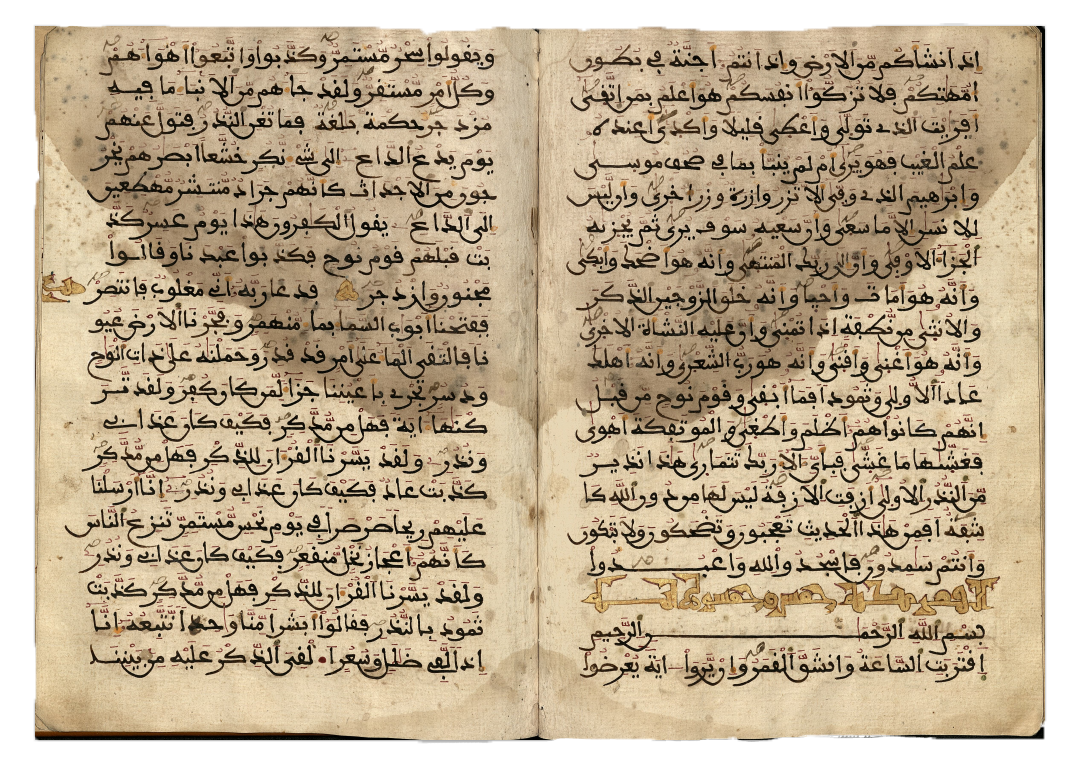 اذ انشاكم من الارض واذ انتم اجنة في بطون
امهتكم فلا تزكوا انفسكم هو اعلم بمن اتقى
افريت الذي تولى واعطى قليلا واكدى اعنده
علم الغيب فهو يرى ام لم ينبا بما في صحف موسى
وابرهيم الذي وفى الا تزر وازرة وزر اخرى وان ليس
للانسن الا ما سعى وان سعيه سوف يرى ثم يجزيه
الجزا الاوفى وان الى ربك المنتهى وانه هو اضحك وابكى
وانه هو امات واحيا وانه خلق الزوجين الذكر
والانثى من نطفة اذا تمنى وان عليه النشاة الاخرى
وانه هو اغنى واقنى وانه هو رب الشعرى وانه اهلك
عادا الاولى وثمودا فما ابقى وقوم نوح من قبل
انهم كانوا هم اظلم واطغى والموتفكة اهوى
فغشيها ما غشى فباي الا ربك تتمارى هذا نذير
من النذر الاولى ازفت الازفة ليس لها من دون الله كا
شفة افمن هذا الحديث تعجبون وتضحكون ولا تبكون
وانتم سمدون فاسجدوا لله واعبدوا
القمر مكية خمس وخمسون اية
بسم الله الرحمن الرحيم
اقتربت الساعة وانشق القمر وان يروا اية يعرضوا
ويقولوا سحر مستمر وكذبوا واتبعوا اهواهم
وكل امر مستقر ولقد جاهم من الانبا ما فيه
مزدجر حكمة بلغة فما تغن النذر فتول عنهم
يوم يدع الداع الى شي نكر خشعا ابصرهم يخر
جون من الاجداث كانهم جراد منتشر مهطعين
الى الداع يقول الكفرون هذا يوم عسر كذ
بت قبلهم قوم نوح فكذبوا عبدنا وقالوا
مجنون وازدجر فدعا ربه اني مغلوب فانتصر
ففتحنا ابوب السما بما منهمر وفجرنا الارض عيو
نا فالتقى الما على امر قد قدر وحملنه على ذات الوح
ودسر تجري باعيننا جزا لمن كان كفر ولقد تر
كنها اية فهل من مدكر فكيف كان عذابي
ونذر ولقد يسرنا القران للذكر فهل من مدكر
كذبت عاد فكيف كان عذابي ونذر انا ارسلنا
عليهم ريحا صرصرا في يوم نحس مستمر تنزع الناس
كانهم اعجاز نخل منقعر فكيف كان عذابي ونذر
ولقد يسرنا القران للذكر فهل من مدكر كذبت
ثمود بالنذر فقالوا ابشرا منا وحدا نتبعه انا
اذا لفي ضلل وسعر القي الذكر عليه من بيننا